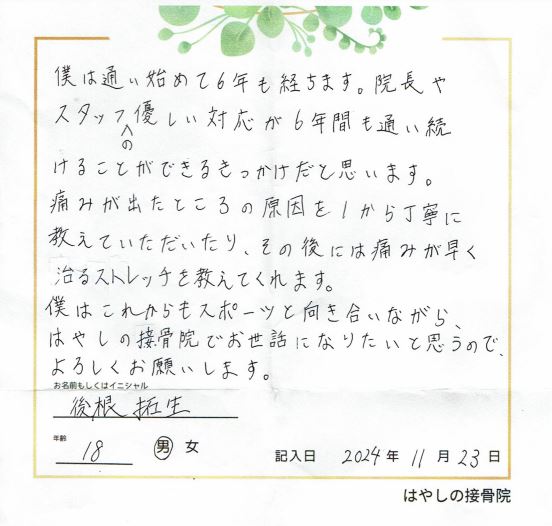 僕は通い始めて6年も経ちます。院長や
スタッフの優しい対応が6年間も通い続
けることができるきっかけだと思います。
痛みが出たところの原因を1から丁寧に
教えていただいたり、その後には痛みが早く
治るストレッチを教えてくれます。
僕はこれからもスポーツと向き合いながら、
はやしの接骨院でお世話になりたいと思うので、
よろしくお願いします。
お名前もしくはイニシャル
後根 拓生
年齢
18 男 女 記入日 2024年 11月23日
はやしの接骨院